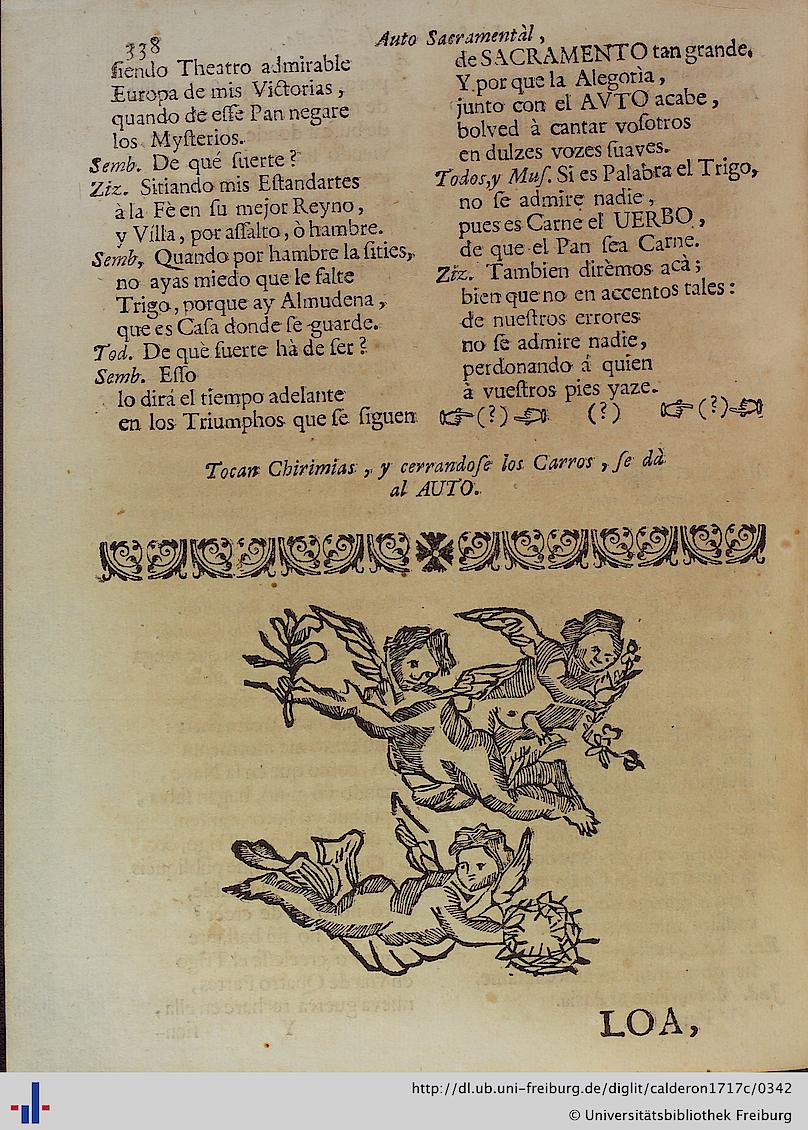 338
Auto Sacramentàl,
siendo Theatro admirable
Europa de mis Victorias,
quando de esse Pan negare
los Mysterios.
Semb. De qué suerte?
Ziz. Sitiando mis Estandartes
à la Fè en su mejor Reyno,
y Villa, por assalto, ò hambre.
Semb. Quando por hambre la sities,
no ayas miedo que le falte
Trigo, porque ay Almudena,
que es Casa donde se guarde.
Tod. De què suerte hà de ser?
Semb. Esso
lo dirá el tiempo adelante
en los Triumphos que se siguen
de SACRAMENTO tan grande.
Y por que la Alegorìa,
junto con el AVTO acabe,
bolved à cantar vosotros
en dulzes vozes suaves.
Todos, y Mus. Si es Palabra el Trigo,
no se admire nadie,
pues es Carne el UERBO,
de que el Pan sea Carne.
Ziz. Tambien dirèmos acà;
bien que no en accentos tales:
de nuestros errores
no se admire nadie,
perdonando á quien
à vuestros pies yaze.
☞(?)☜ (?) ☞(?)☜
Tocan Chirimias, y cerrandose los Carros, se dà
al AUTO.
LOA,
http://dl.ub.uni-freiburg.de/diglit/calderon1717c/0342
© Universitätsbibliothek Freiburg